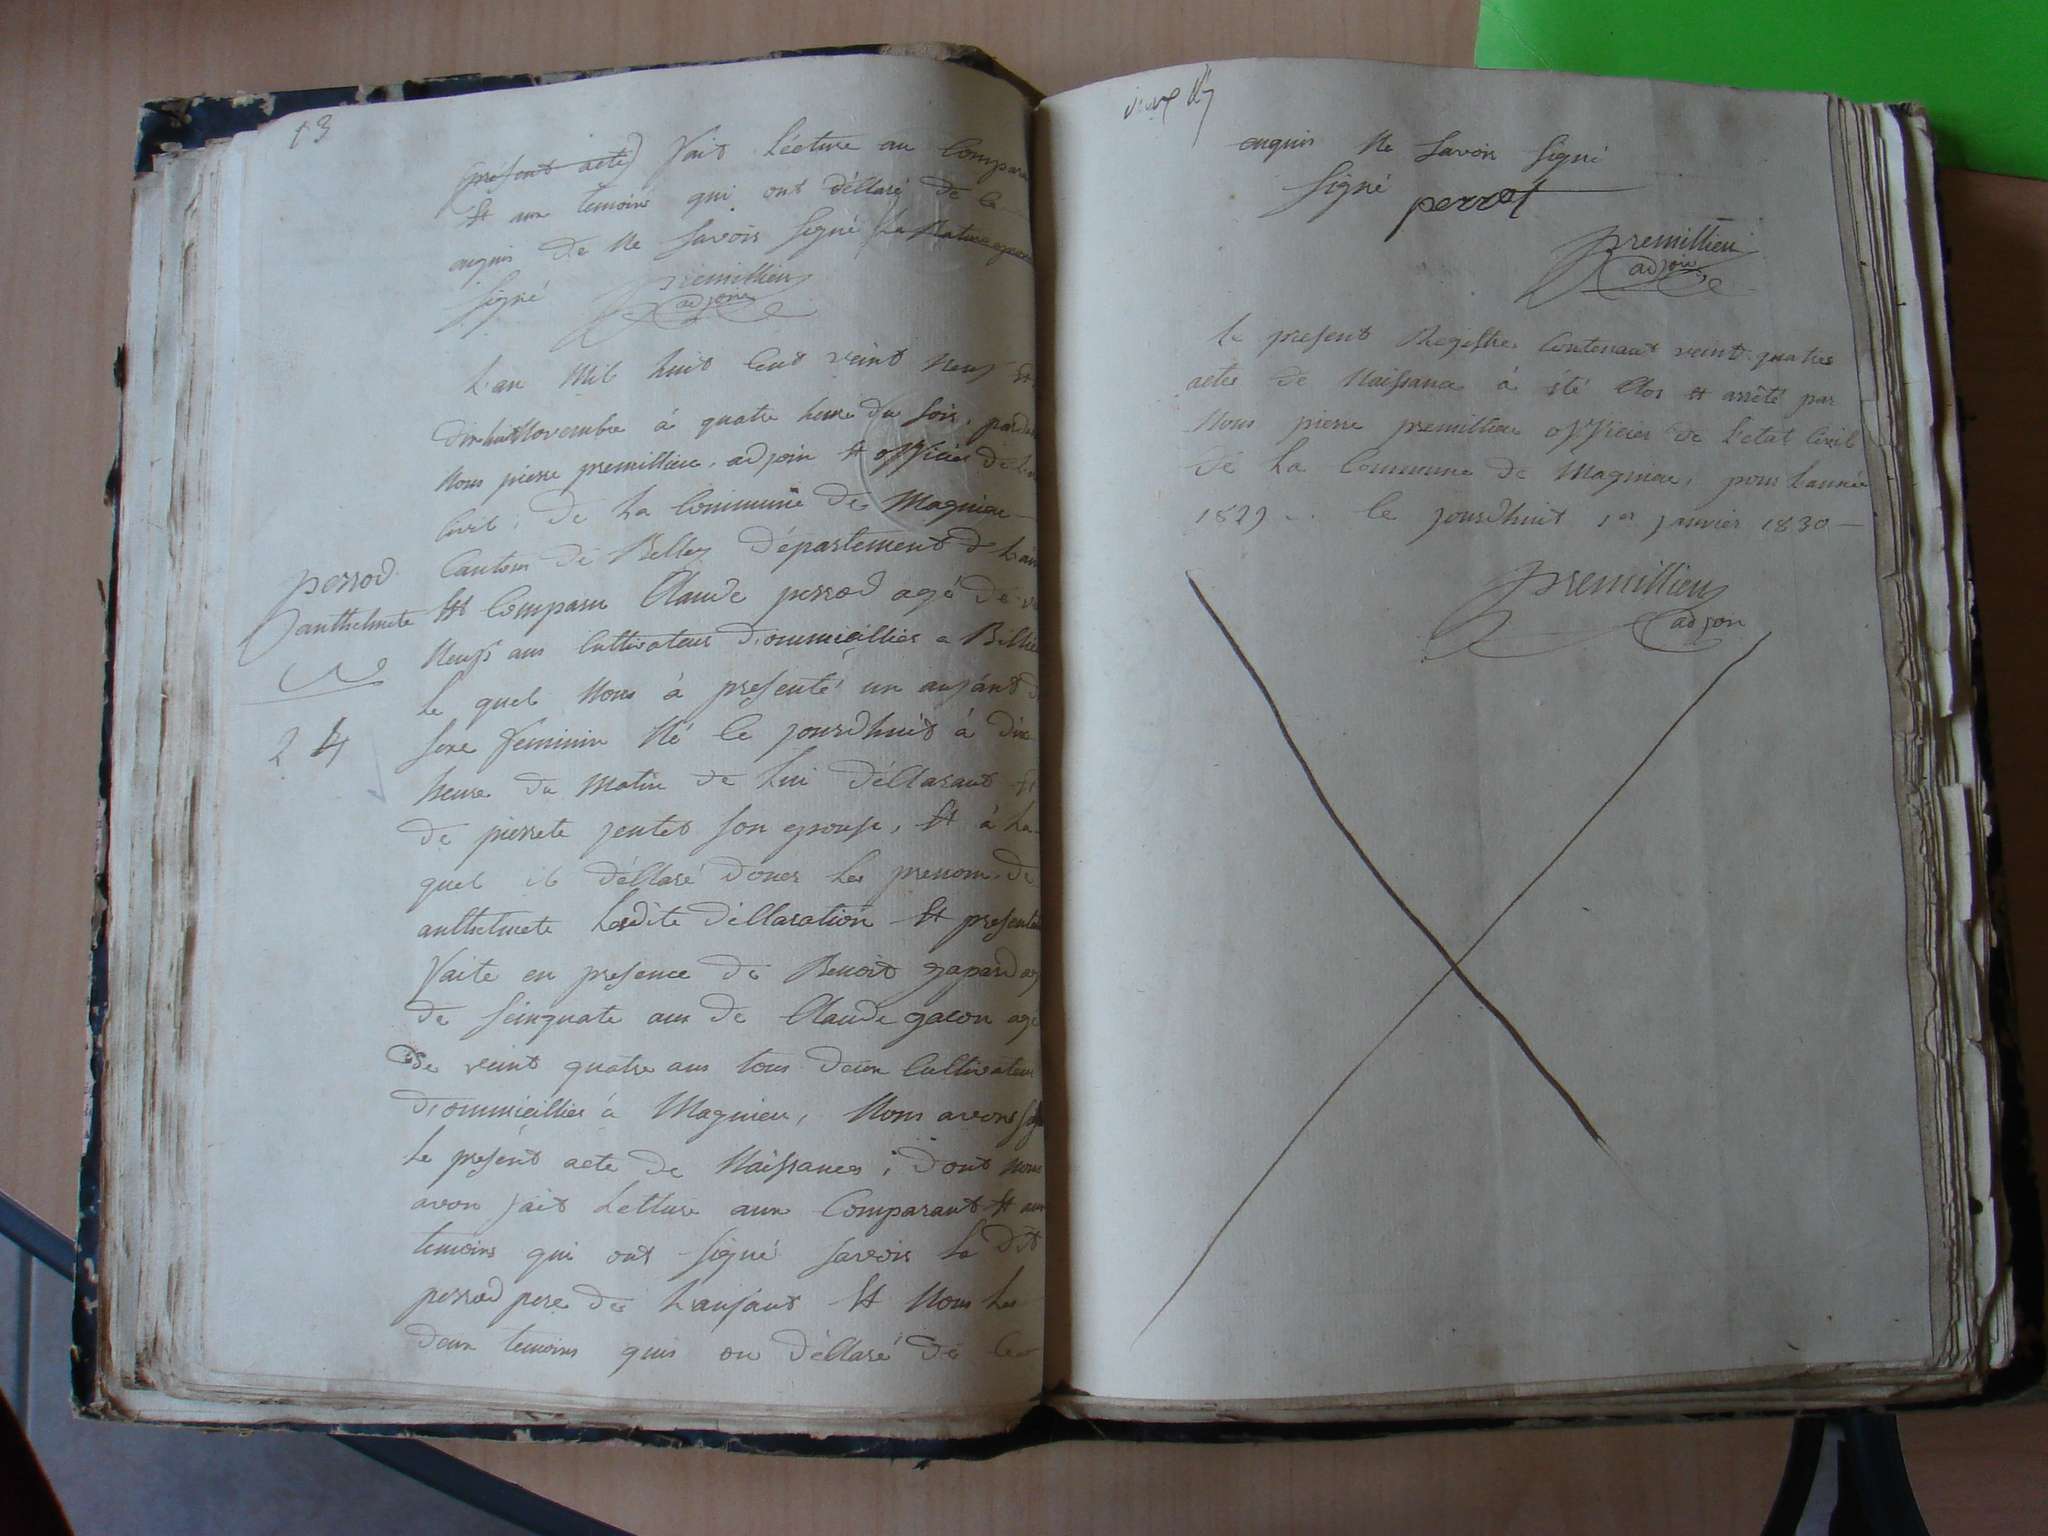 13
présent acte) fait Lécture au Compara
Et aux temoins qui ont déllaré de Ce
enquis de Ne Savoir Signé
Signé premillieu
adjoin
L'an Mil huit Cent veint Neuf Et
dixhuit Novembre à quatre heure du Soir, pardev
Nous pierre premillieu, adjoin Et officier de L'et
Civil, de La Commune de Magnieu
Canton de Belley département de L'ain
perrod
anthelmete
Est Comparu Claude perrod agé de ve
Neufs ans Cultivateur dommicillier a Billieu
Le quel Nous à presenté un anfant d
sexe feminin Né Ce jourdhuit à dix
24
heure du Matin de Lui déllarant Et
de pierrete jentet Son epouse, Et à La
quel il déllaré doner Les prenom de
anthelmete Lesdite déllaration Et presenta
faite en presence de Benoit gapard ag
de Seinquate ans de Claude gacon agé
de veint quatre ans tous deux Cultivateur
dommicillier à Magnieu, Nous avons
Le présent acte de Naissances, dont Nous
avon fait Letture aux Comparant Et aux
temoins qui ont Signé Savoir Le dit
perrod pere de L'anfant Et Nous Les
deux temoins quis on déllaré de Ce
enquis Ne Savoir Signé
Signé perrot
premillieu
adjoin
Le present Registre Contenant veint quatres
actes de Naissance à été Clos Et arrêté par
Nous pierre premillieu officier de L'etat Civil
de La Commune de Magnieu, pour L'année
1829 .. Ce jourdhuit 1er janvier 1830
premillieu
adjoin